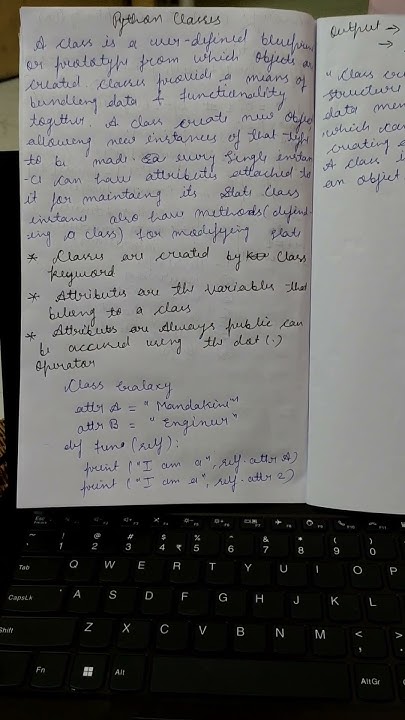 Python Classes
A class is a user-defined blueprint
or prototype from which objects are
created. Classes provide a means of
bundling data + functionality
together. A class create new object
allowing new instances of that type
to be made. Ea every single instan
-ce can have attributes attached to
it for maintaing its state class
instance also have methods (defin-
ing a class) for modifying state
* Classes are created by Class
keyword
* Attributes are the variables that
belong to a class
* Attributes are Always public can
be accused using the dot (.)
Operator
Class Galaxy
attr A = "Mandakini"
attr B = "Engineer"
def func (self):
print ("I am a", self.attr A)
print ("I am a", self.attr 2)
Output →
→
"Class cre
structure
data mem
which can
creating
A class i
an object
Esc
~ ! @ # $ % ^ & * ( )
` 1 2 3 4 ₹ 5 6 7 8 9 0
Tab Q W E R T Y U I O P
CapsLk A S D F G H J K L
Shift Z X C V B N M < ,
Fn Alt AltGr